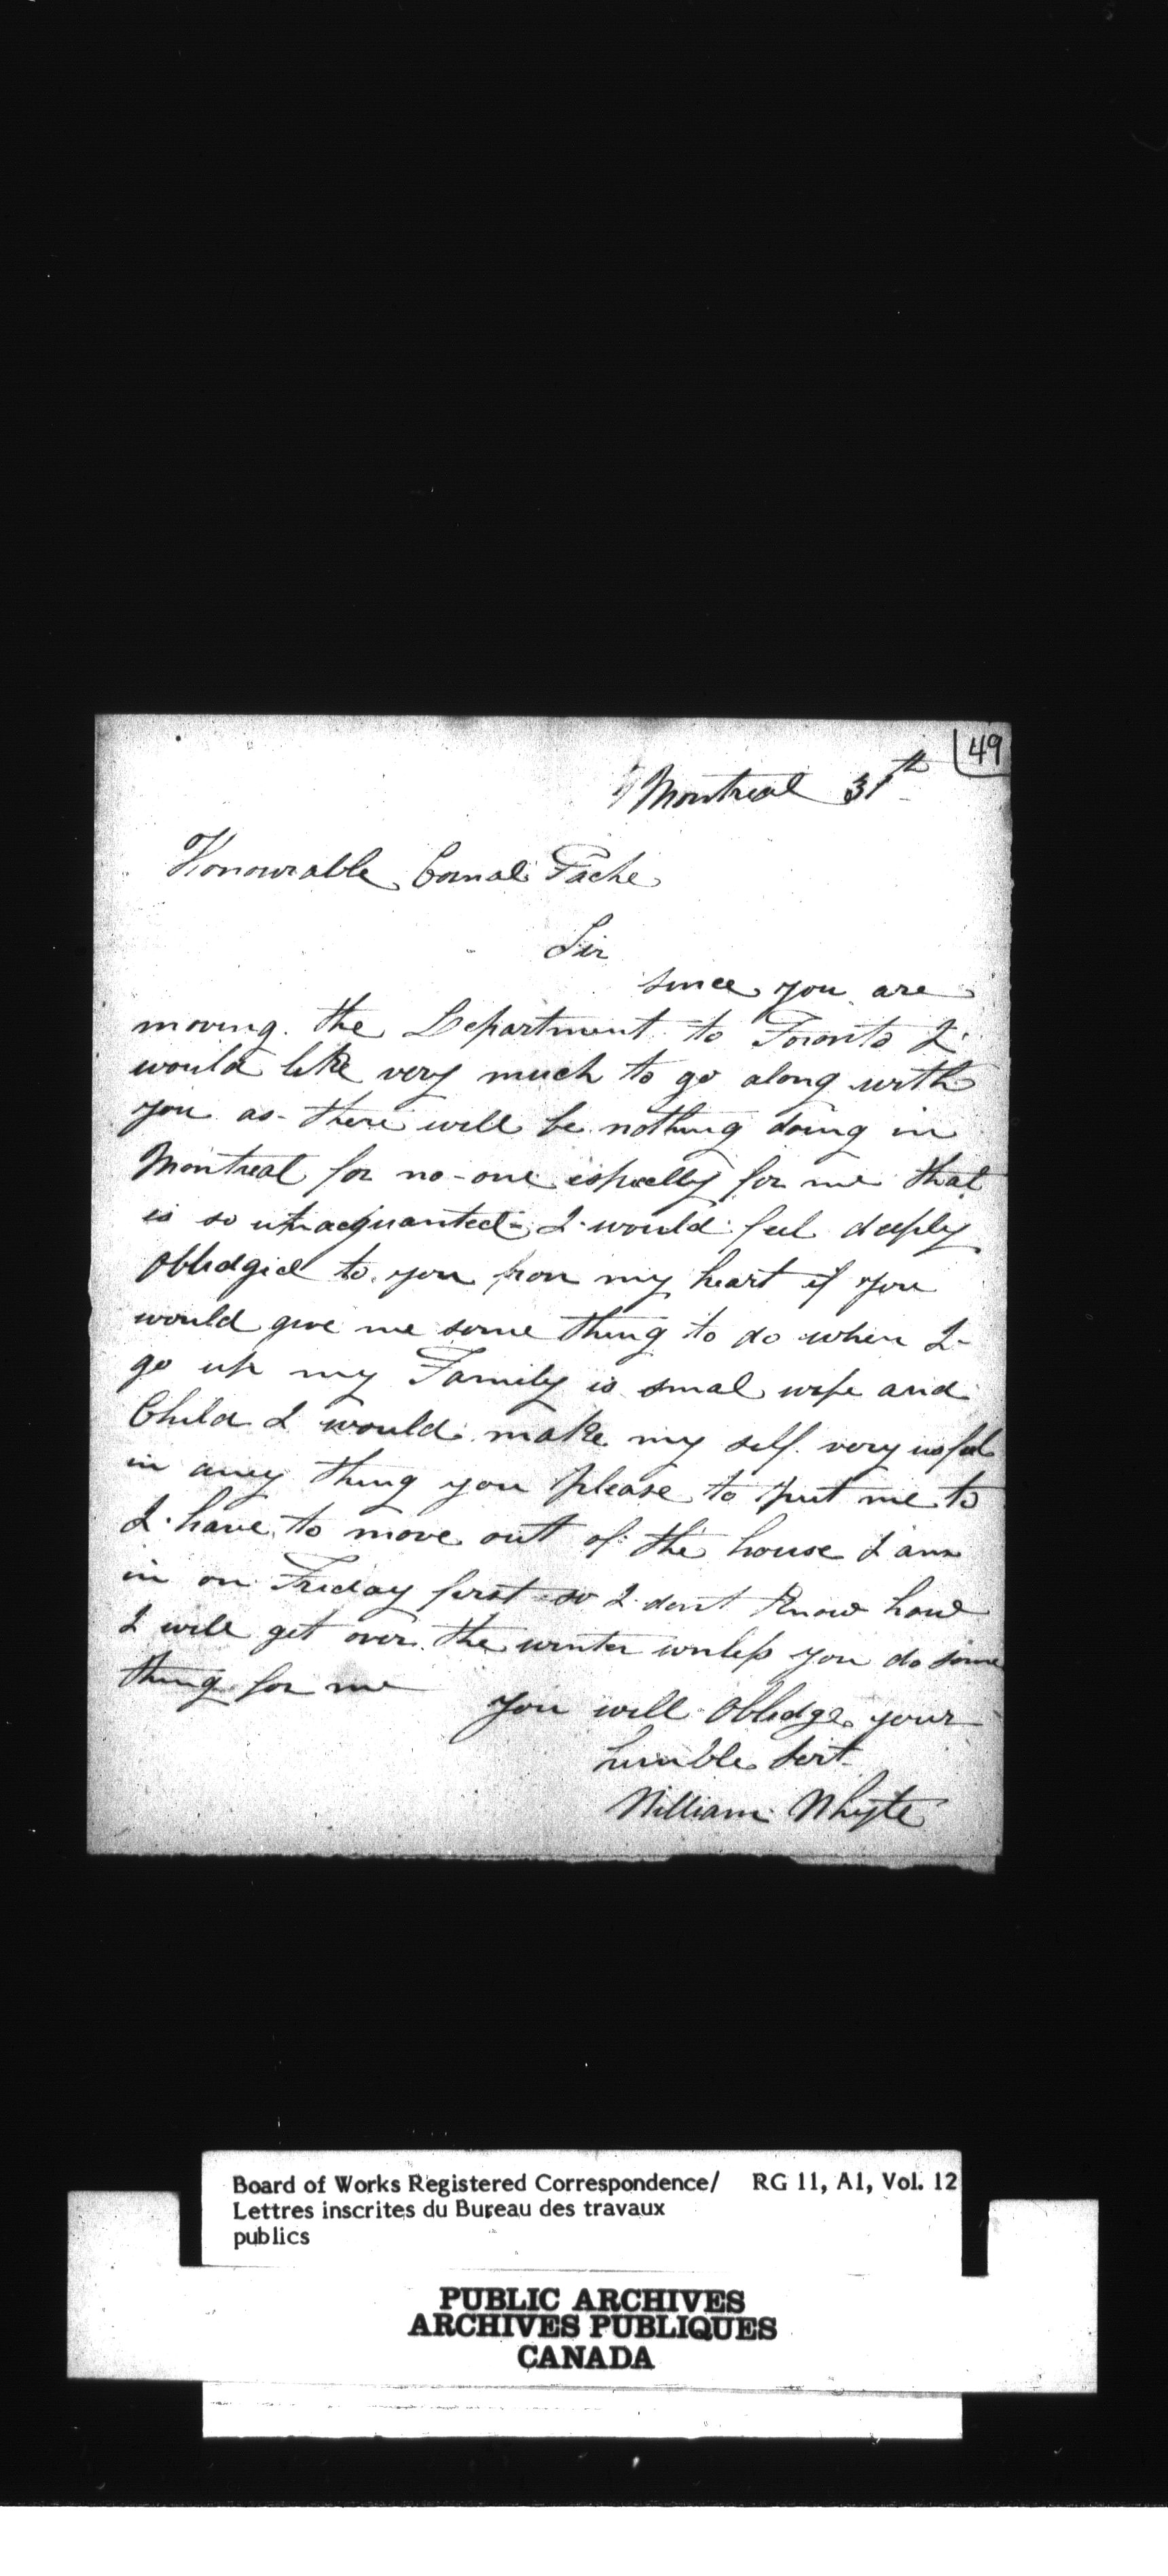 49
Montreal 31th
Honourable Cornal Tache
Sir
since you are
moving the Department to Toronto I
would like very much to go along with
you as there will be nothing doing in
Montreal for no-one espually for me that
is so unacquanted I would feel deeply
Obledgied to you from my heart if you
would give me some thing to do when I
go up my Family is smal wife and
Child I would make my self very usful
in aney thing you please to put me to
I have to move out of the house I am
in on Friday first so I dont know how
I will get over the winter unless you do some
thing for me
you will Obledge your
humble Sert
William Whyte
Board of Works Registered Correspondence/ RG 11, A1, Vol. 12
Lettres inscrites du Bureau des travaux
publics
PUBLIC ARCHIVES
ARCHIVES PUBLIQUES
CANADA